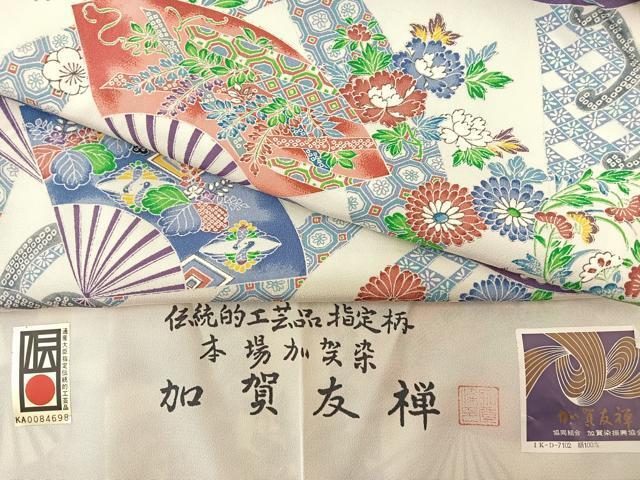 伝統的工芸品指定柄
本場加賀染
加賀友禅
通産大臣指定伝統的工芸品
伝
KA0084698
加賀友禅
協同組合 加賀染振興協会
IK-D-7102 絹100%